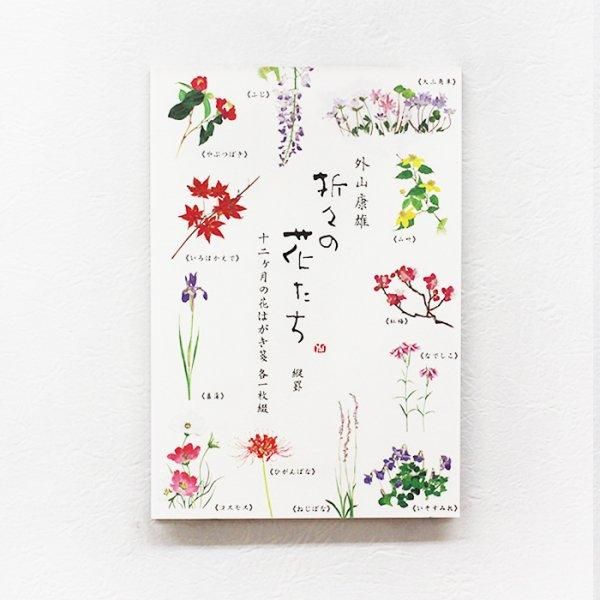 外山康雄
折々の花たち
縦罫
十二ヶ月の花はがき箋 各一枚綴
《やぶつばき》
《ふじ》
《大三角草》
《いろはかえで》
《山吹》
《紅梅》
《菖蒲》
《なでしこ》
《コスモス》
《ひがんばな》
《ねじばな》
《いそすみれ》